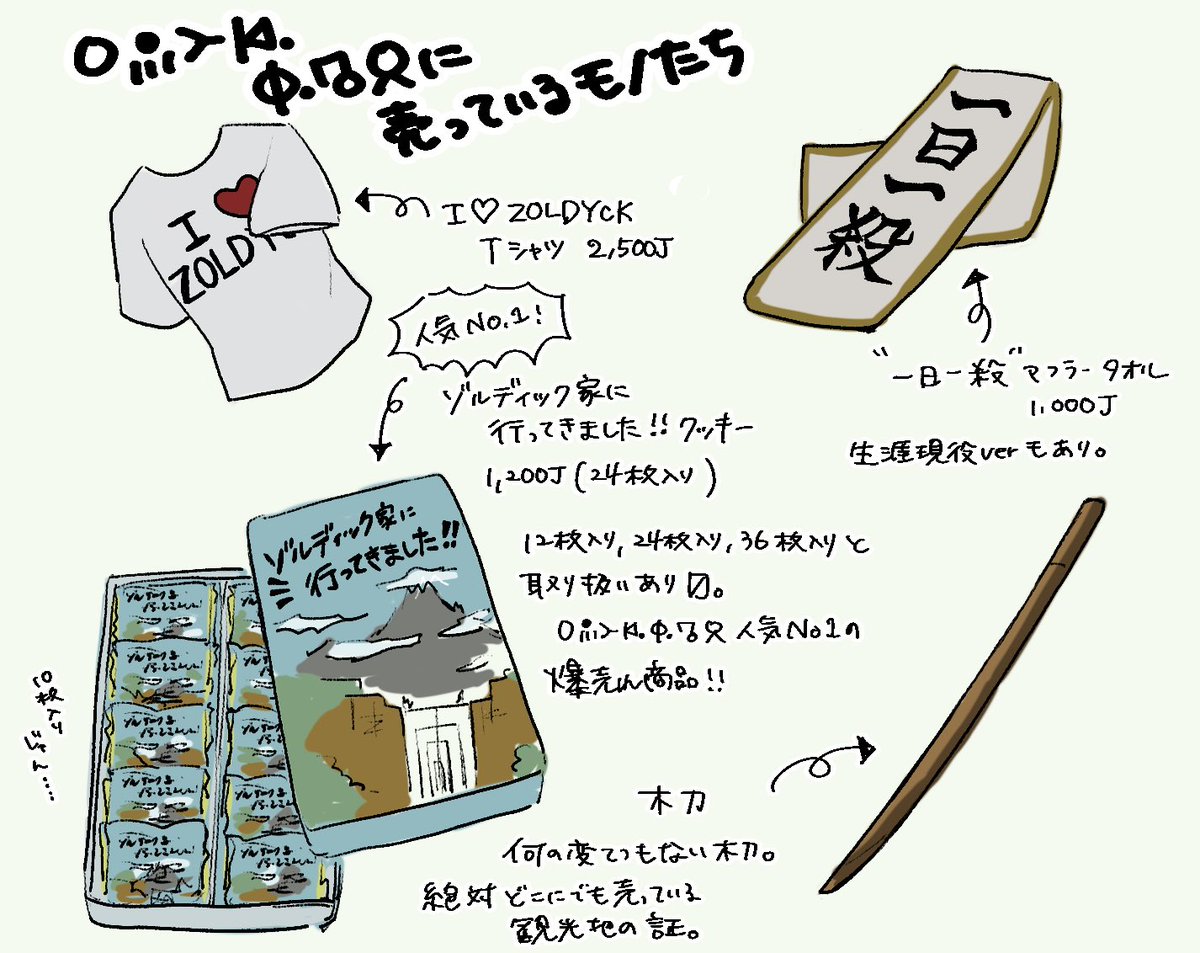 に
売っているモノたち
I ♥
ZOLDY
I♡ZOLDYCK
Tシャツ 2,500J
一日一殺
"一日一殺"マフラータオル
1,000J
生涯現役verもあり。
人気No.1!
ゾルディック家に
行ってきました!!クッキー
1,200J(24枚入り)
ゾルディック家に
行ってきました!!
12枚入り,24枚入り,36枚入りと
取り扱いあり〼。
人気No1の
爆売れ商品!!
10枚入り
じゃん....
木刀
何の変てつもない木刀。
絶対どこにでも売っている
観光地の証。